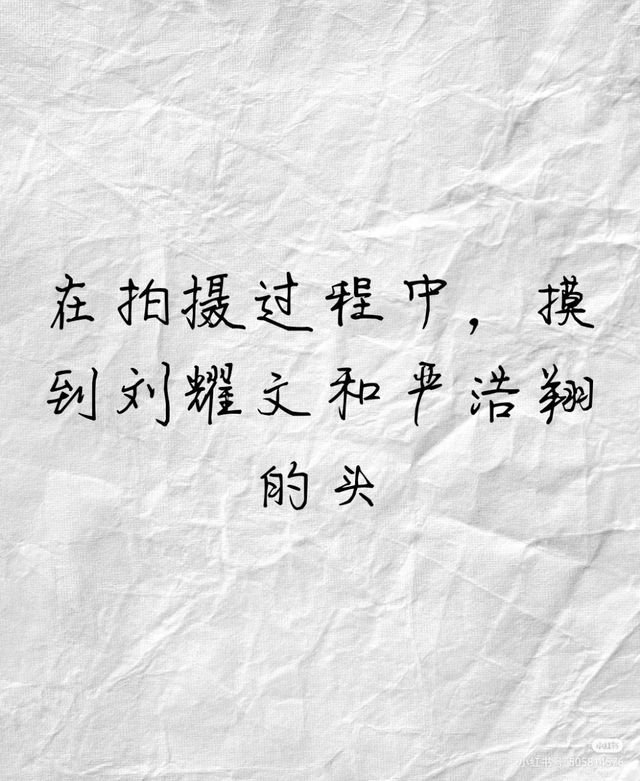 在拍摄过程中，摸
到刘耀文和严浩翔
的头
小红书